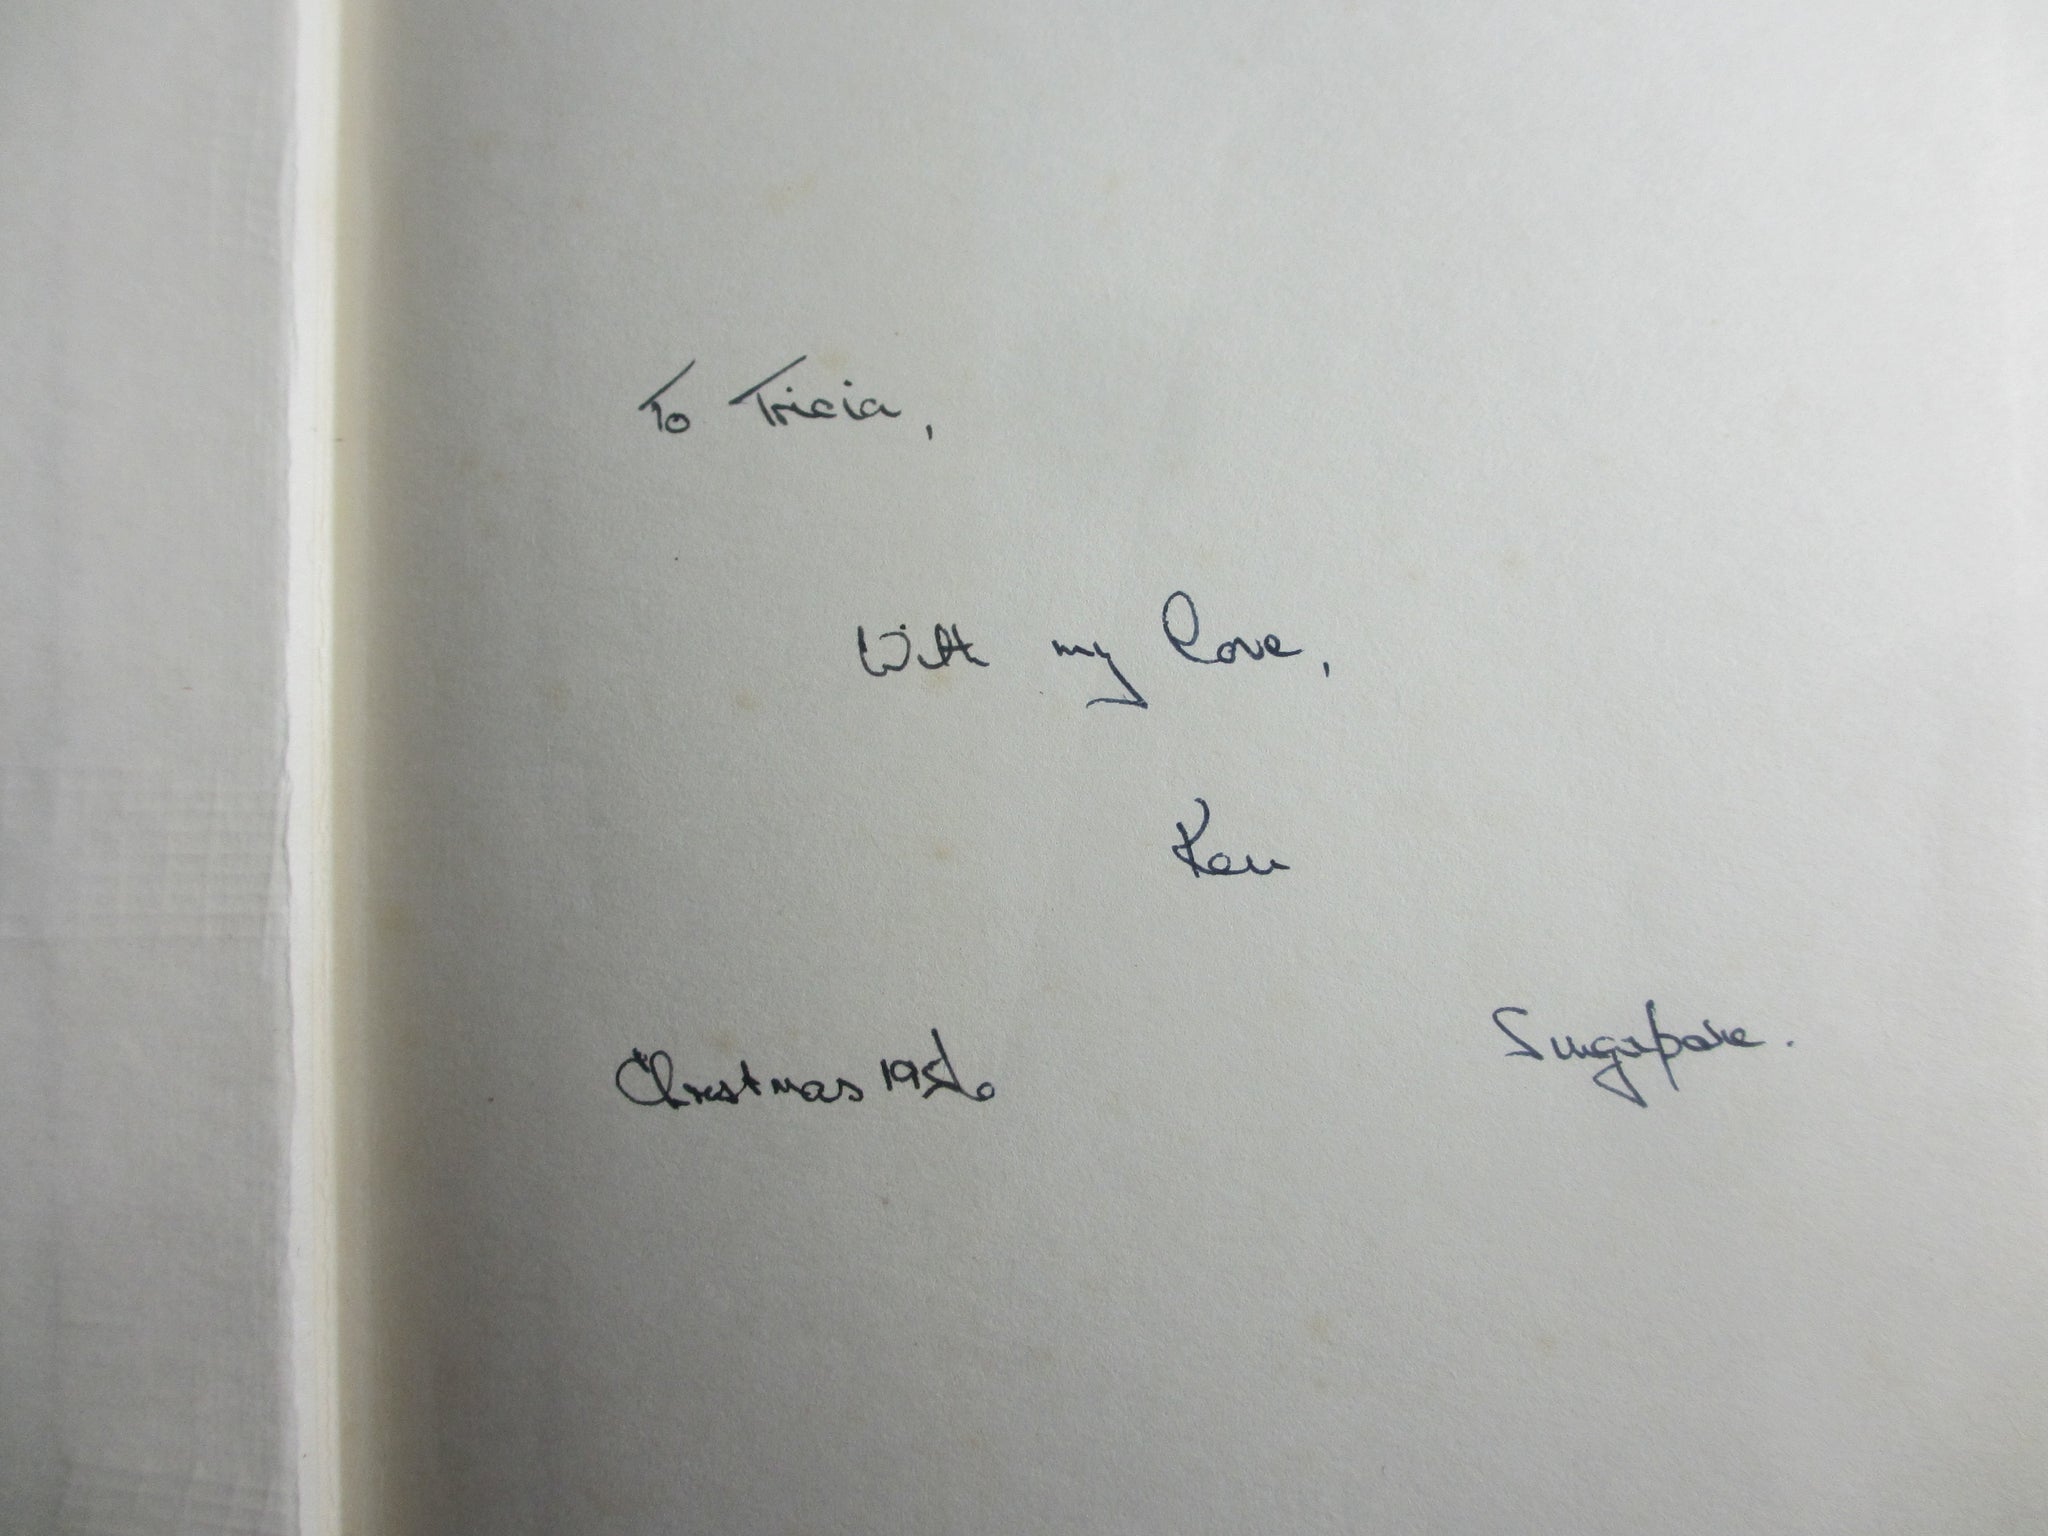 To Tricia,
With my love,
Ken
Singapore.
Christmas 1956